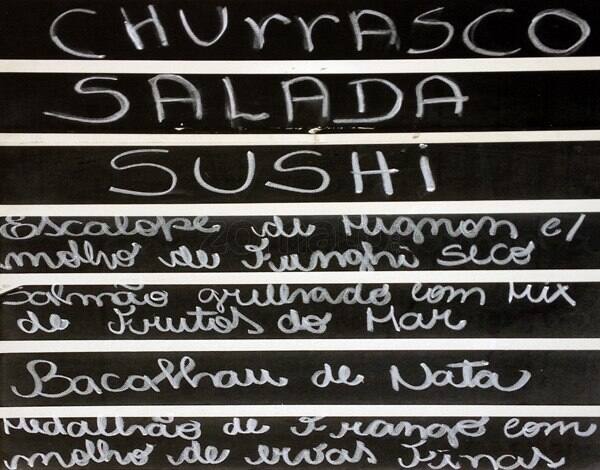 CHURRASCO
SALADA
SUSHi
Escalope di Mignon c/
molho de Funghi seco
Salmão grelhado com Mix
de Frutos do Mar
Bacalhau de Nata
Medalhão de Frango com
molho de ervas Finas